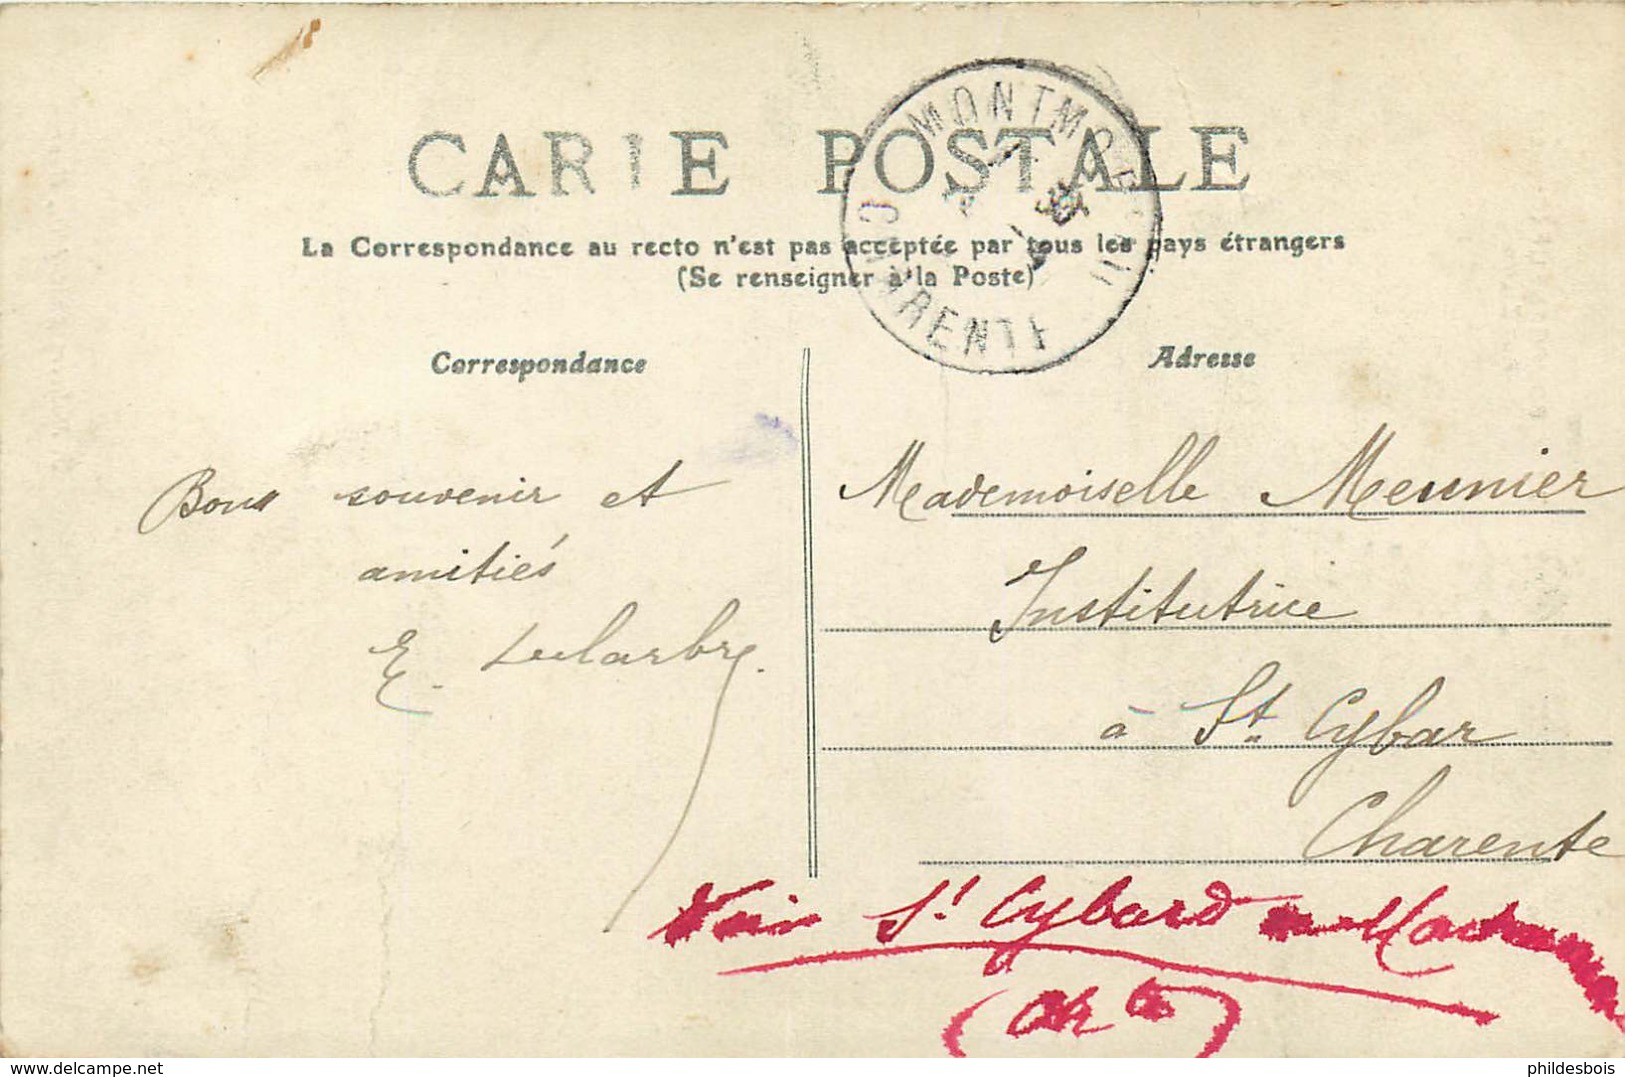 CARTE POSTALE
La Correspondance au recto n'est pas acceptée par tous les pays étrangers
(Se renseigner à la Poste)
MONTMOREAU
CHARENTE
Correspondance
Adresse
Bons souvenir et
amitiés
E. Delarbre.
Mademoiselle Meunier
Institutrice
à St. Cybar
Charente
Voir St Cybard
(Chte)
www.delcampe.net
phildesbois